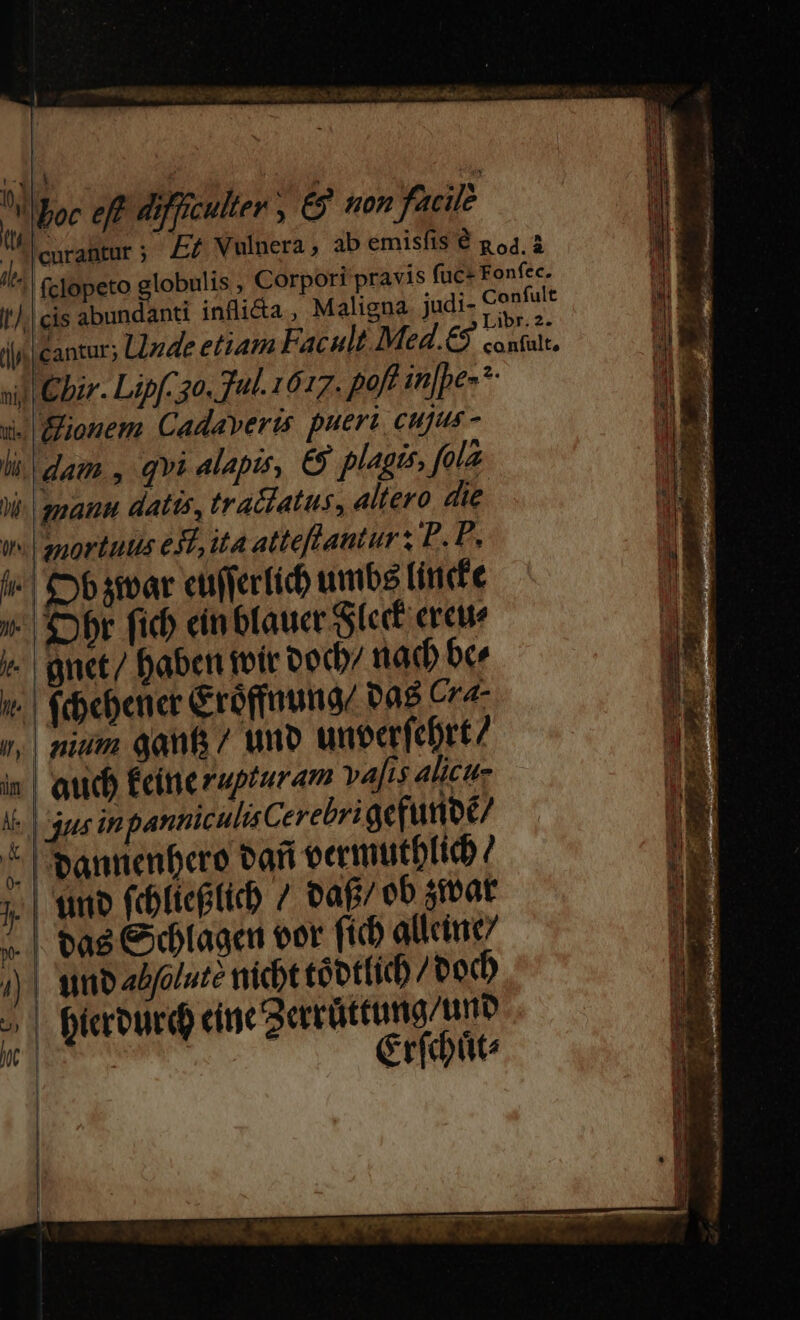 hoc eſt difficulter, & non facilè
curantur; Et Vulnera, ab emisſis è
ſclopeto globulis, Corpori pravis ſuc-
cis abundanti inflicta, Maligna judi-
cantur; Unde etiam Facult. Med. &
Chir. Lipſ. 30. Jul. 1617. poſt inſpe-
ctionem Cadaveris pueri cujus-
dam, qvi alapis, & plagis, ſolâ
manu datis, tractatus, altero die
mortuus eſt, ita atteſtantur: P. P.
Ob zwar euſſerlich umbs lincke
Ohr ſich ein blauer Fleck ereu-
gnet / haben wir doch / nach be-
ſchehener Eröffnung / das Cra-
nium gantz / und unverſehrt /
auch keine rupturam vaſis alicu-
jus in panniculis Cerebri gefundẽ /
dannenhero dañ vermuthlich /
und ſchließlich / daß / ob zwar
das Schlagen vor ſich alleine /
und abſolutè nicht tödtlich / doch
hierdurch eine Zerrüttung / und
Erſchüt-
Rod. à
Fonſec.
Conſult
Libr. 2.
conſult.
2.